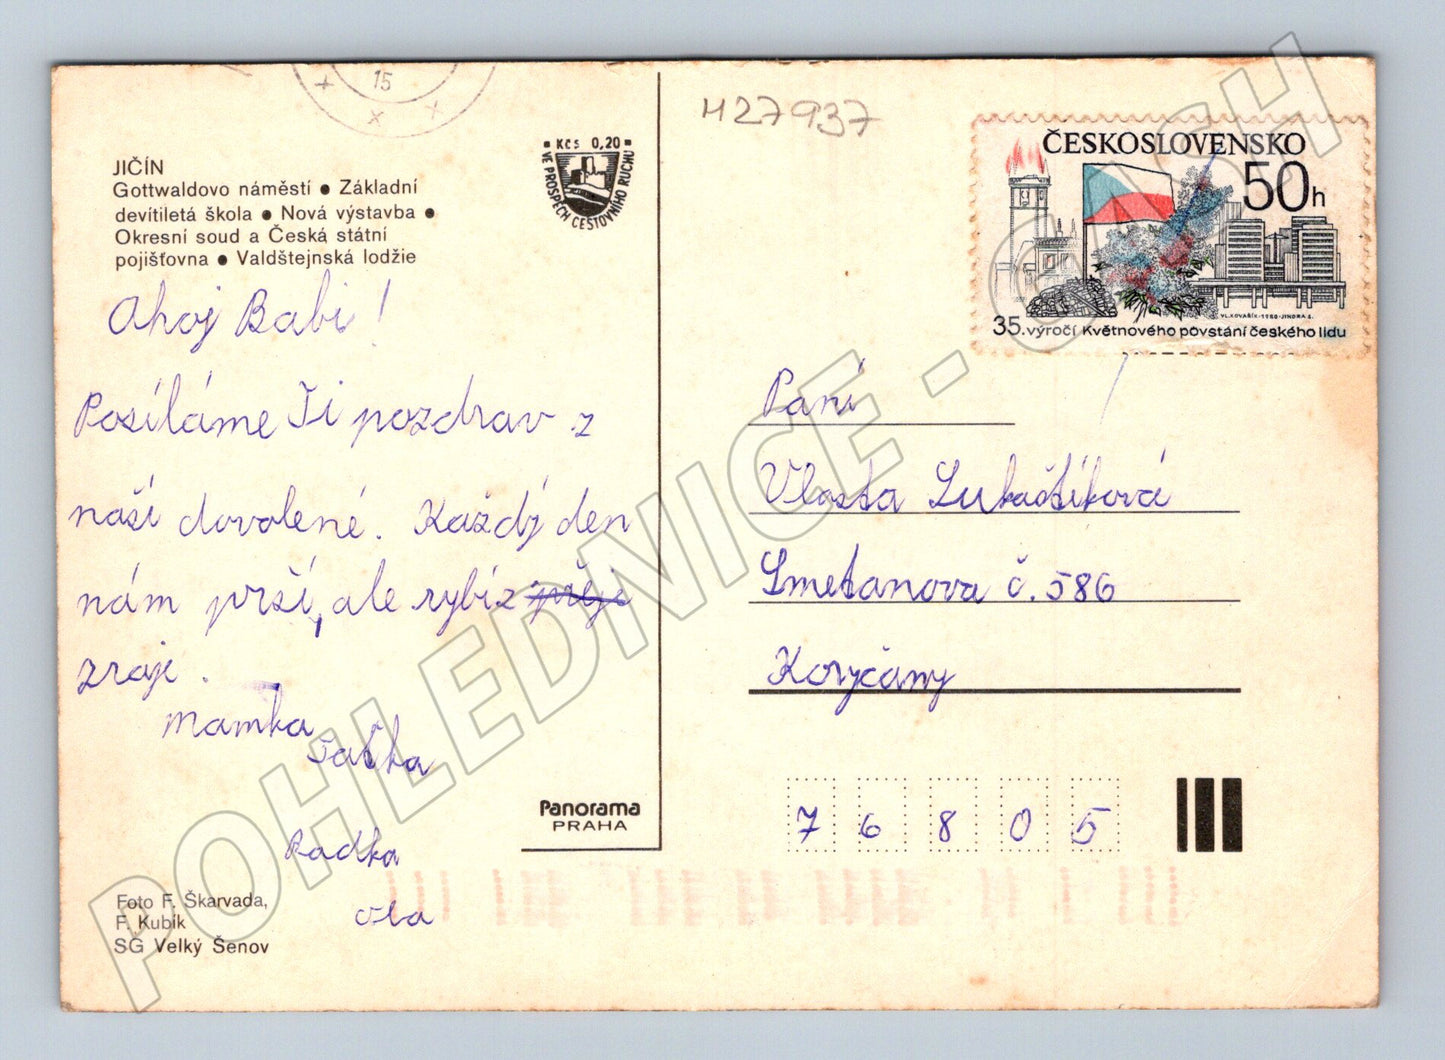 15
H27937
JIČÍN
Gottwaldovo náměstí ● Základní
devítiletá škola ● Nová výstavba ●
Okresní soud a Česká státní
pojišťovna ● Valdštejnská lodžie
KČS 0,20
VE PROSPĚCH CESTOVNÍHO RUCHU
ČESKOSLOVENSKO
50h
VL.KOVAŘÍK-1980-JINDRA S.
35.výročí Květnového povstání českého lidu
Ahoj Babi!
Posíláme Ti pozdrav z
naší dovolené. Každý den
nám prší, ale rybíz
zraje.
Mamka
Taťka
Radka
Ola
Paní
Vlasta Lukaštíková
Smetanova č. 586
Koryčany
76805
Panorama
PRAHA
Foto F. Škarvada,
F. Kubík
SG Velký Šenov
POHLEDNICE - CASH